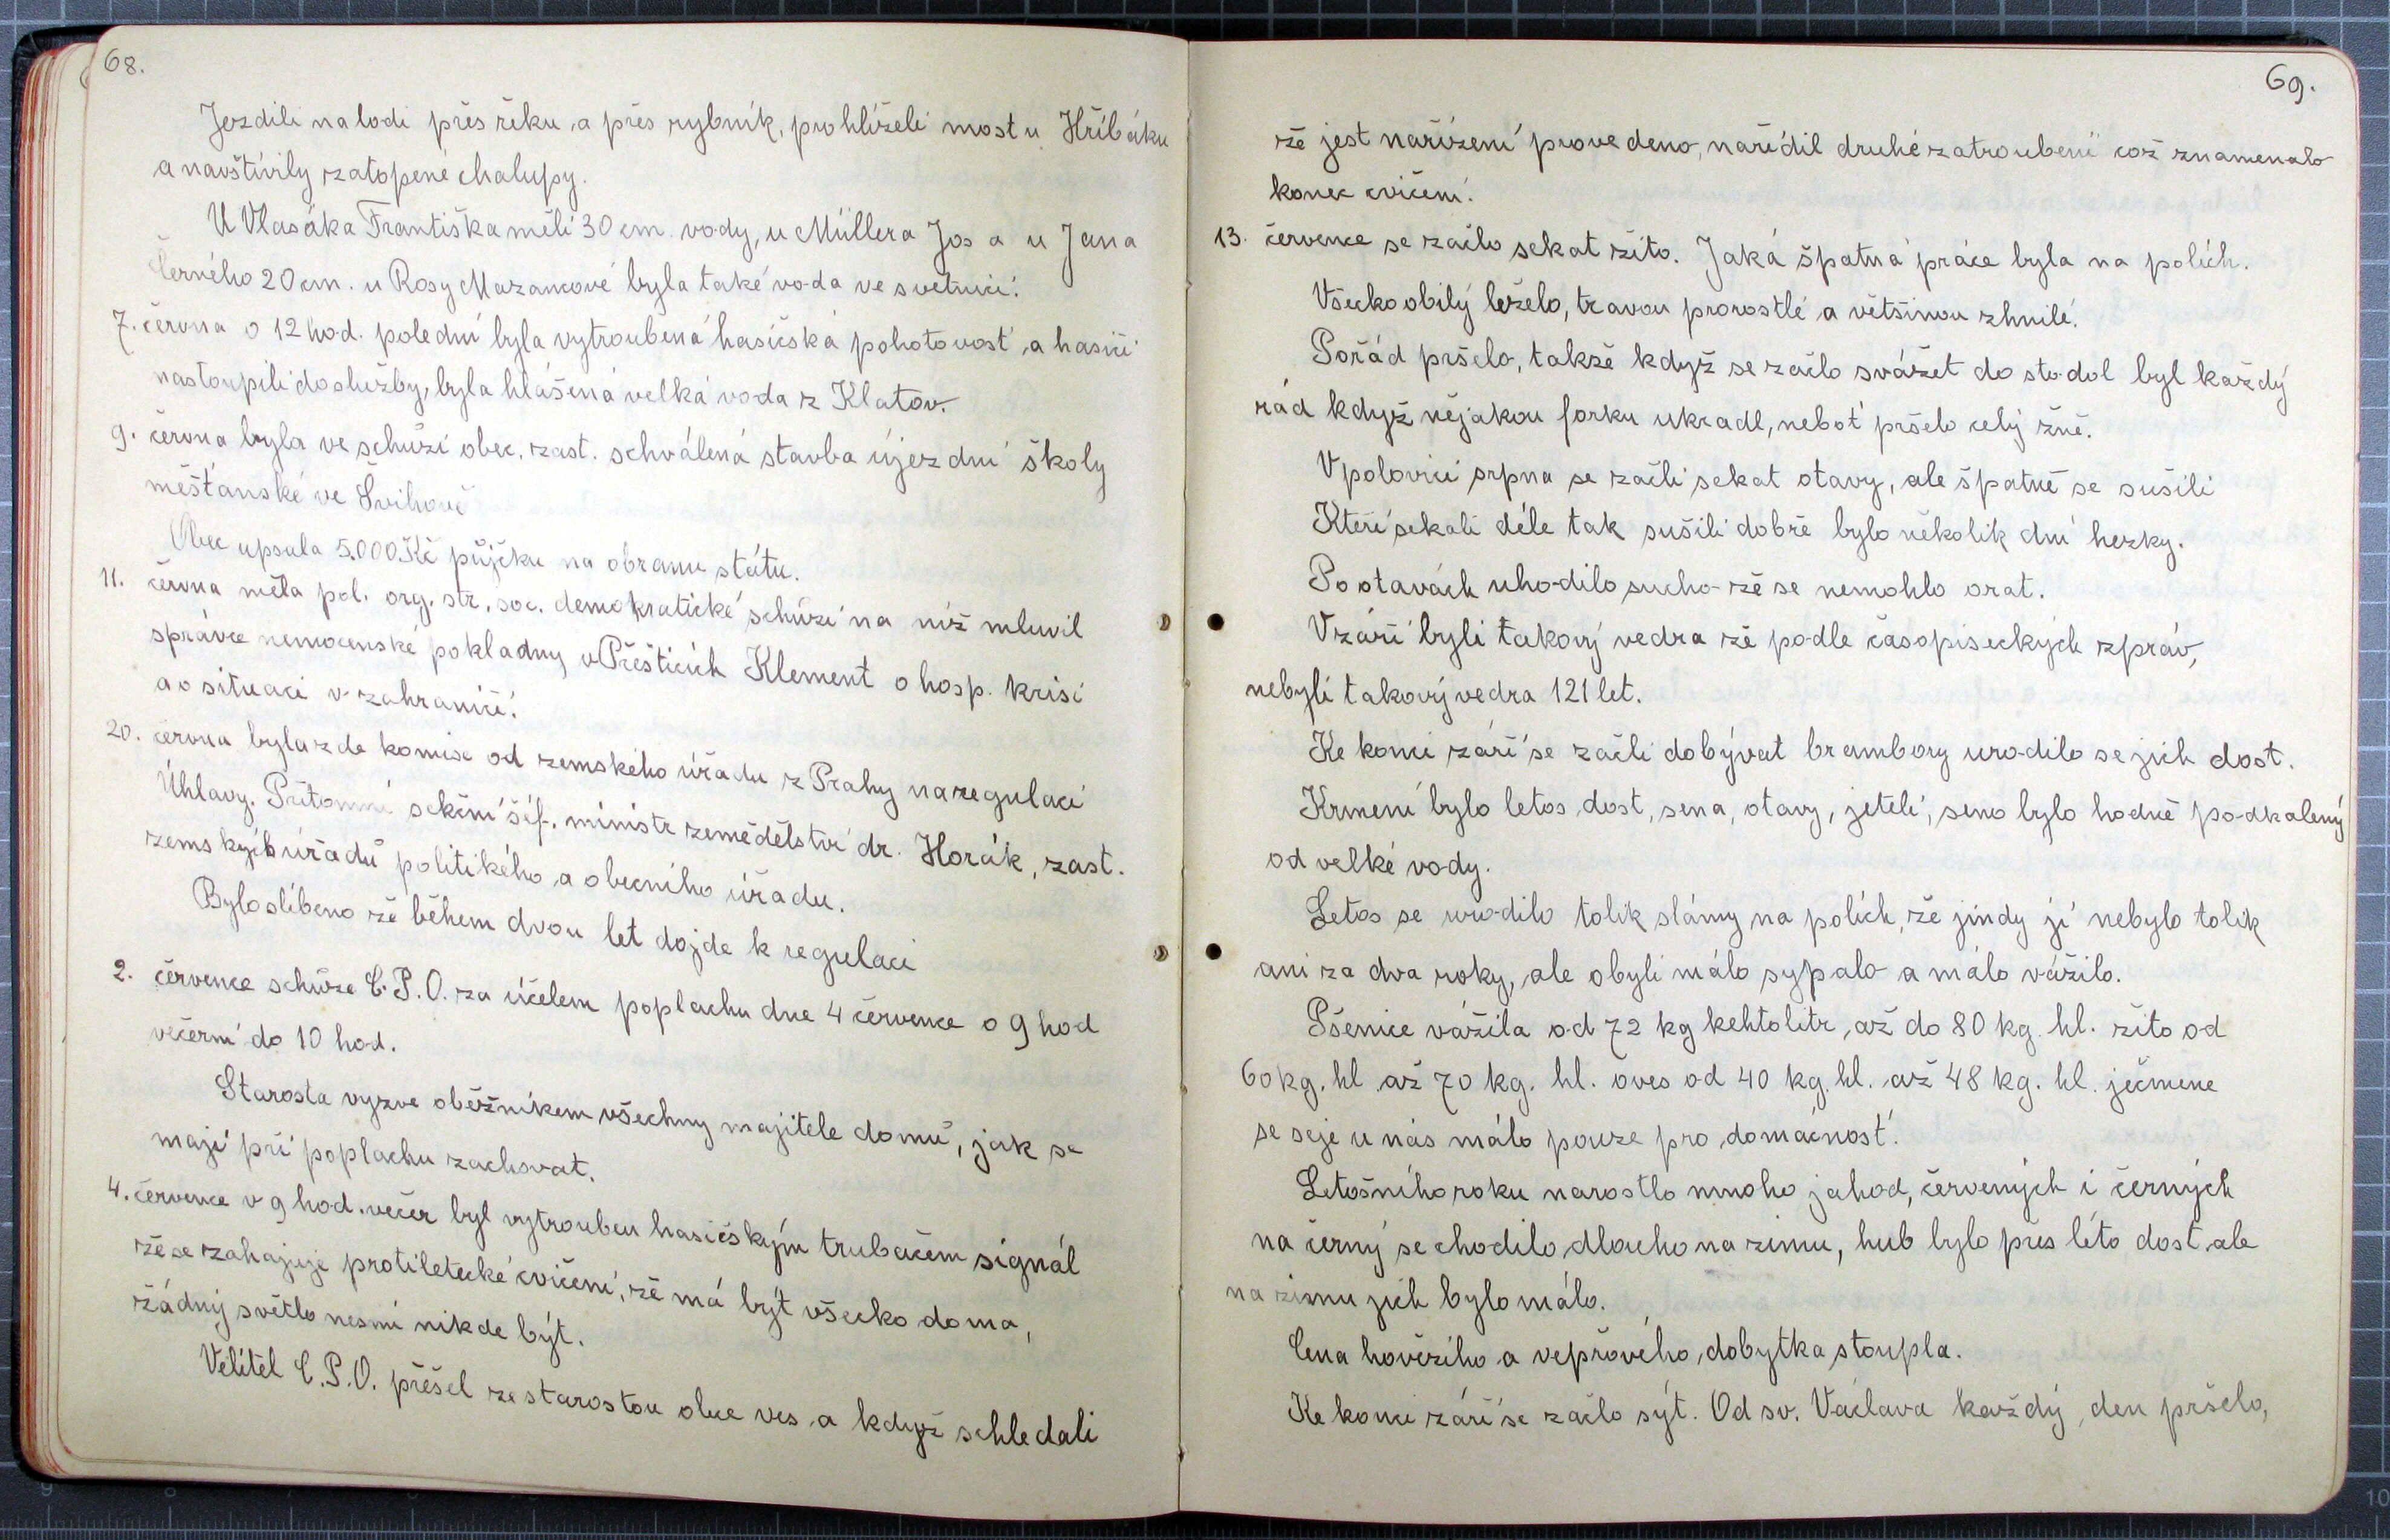 68.
Jezdili na lodi přes řeku a přes rybník, prohlíželi most u Hříbáku
a navštívily zatopené chalupy.
U Vlasáka Františka měli 30 cm. vody, u Müllera Jos a u Jana
Černého 20 cm. u Rosy Mazancové byla také voda ve světnici.
7. června o 12 hod. polední byla vytroubená hasičská pohotovost, a hasiči
nastoupili do služby, byla hlášená velká voda z Klatov.
9. června byla ve schůzi obec. zast. schválená stavba újezdní školy
měšťanské ve Švihově
Obec upsala 5.000 Kč půjčku na obranu státu.
11. června měla pol. org. str. soc. demokratické schůzi na níž mluvil
správce nemocenské pokladny v Přešticích Klement o hosp. krisi
a o situaci v zahraničí.
20. června byla zde komise od zemského úřadu z Prahy na regulaci
Úhlavy. Přítomni sekční šéf. ministr zemědělství dr. Horák, zast.
zemských úřadů politikého a obecního úřadu.
Bylo slíbeno že během dvou let dojde k regulaci
2. července schůze C.P.O. za účelem poplachu dne 4 července o 9 hod
večerní do 10 hod.
Starosta vyzve oběžníkem všechny majitele domů, jak se
mají při poplachu zachovat.
4. července v 9 hod. večer byl vytrouben hasičským trubačem signál
že se zahajuje protiletecké cvičení, že má být všecko doma,
žádný světlo nesmí nikde být.
Velitel C.P.O. přešel ze starostou obce ves a když schledali
69.
že jest nařízení provedeno, nařídil druhé zatroubení což znamenalo
konec cvičení.
13. července se začlo sekat žito. Jaká špatná práce byla na polích.
Všecko obilý leželo, travou prorostlé a většinou zhnilé.
Pořád pršelo, takže když se začlo svážet do stodol byl každý
rád když nějakou forku ukradl, neboť pršelo celý žně.
V polovici srpna se začli sekat otavy, ale špatně se sušili
Kteří sekali déle tak sušili dobře bylo několik dní hezky.
Po otavách uhodilo sucho že se nemohlo orat.
V září byli takový vedra že podle časopiseckých zpráv,
nebyli takový vedra 121 let.
Ke konci září se začli dobývat brambory urodilo se jich dost.
Krmení bylo letos dost, sena, otavy, jetelí, seno bylo hodně podkalený
od velké vody.
Letos se urodilo tolik slámy na polích, že jindy jí nebylo tolik
ani za dva roky, ale obylí málo sypalo a málo vážilo.
Pšenice vážila od 72 kg kehtolitr, až do 80 kg. hl. žito od
60 kg. hl až 70 kg. hl. oves od 40 kg. hl. až 48 kg. hl. ječmene
se seje u nás málo pouze pro domácnosť.
Letošního roku narostlo mnoho jahod, červených i černých
na černý se chodilo dloucho na zimu, hub bylo přes léto dost ale
na zimu jich bylo málo.
Cena hovězího a vepřového, dobytka stoupla.
Ke konci září se začlo sýt. Od sv. Václava každý den pršelo,